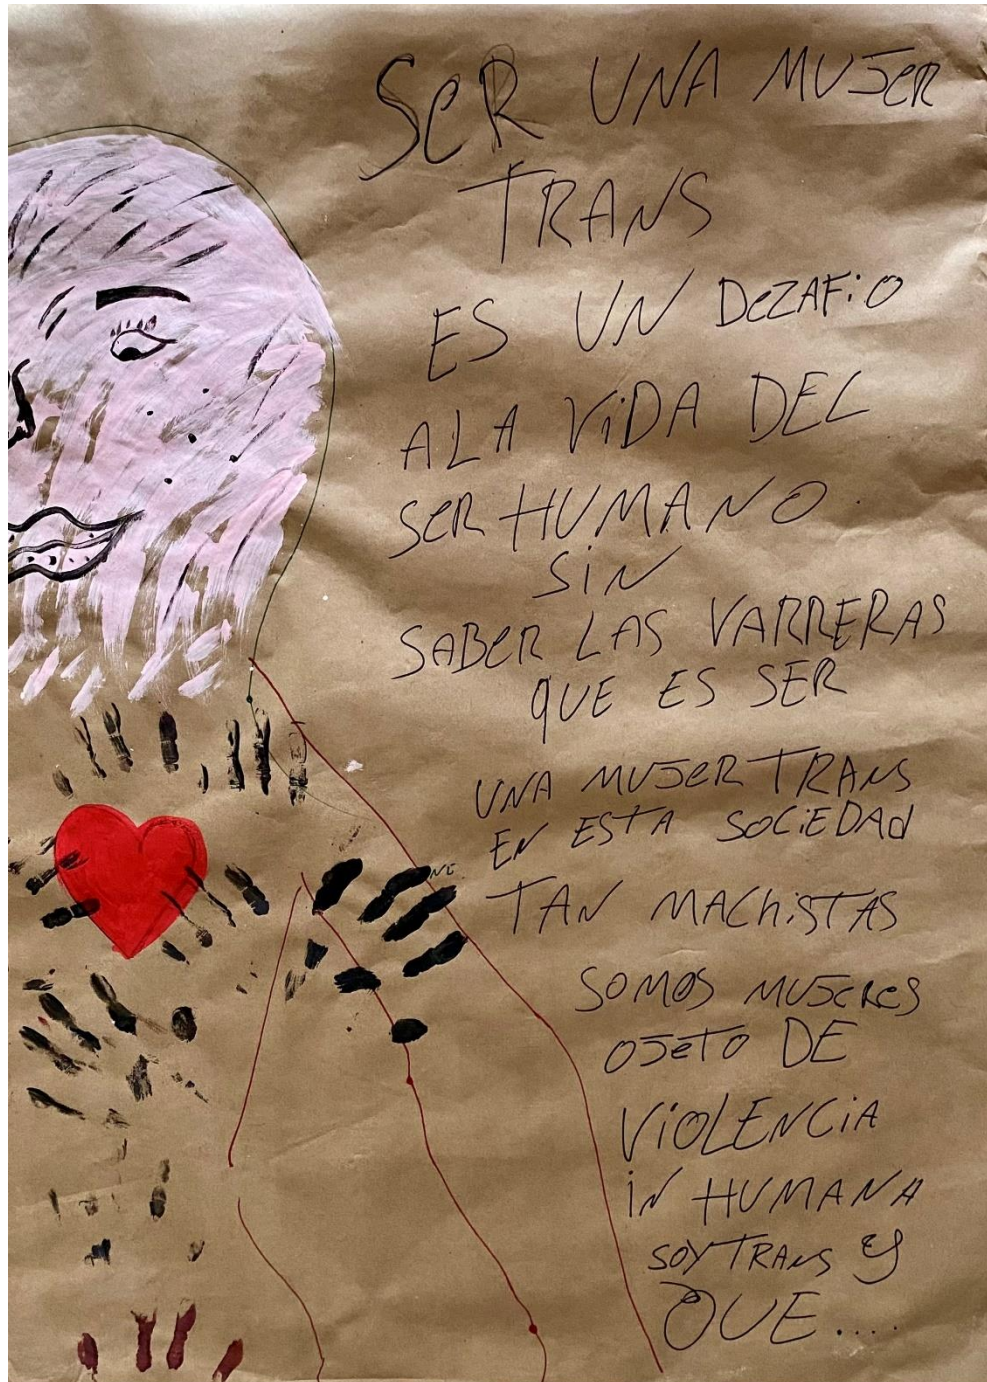 SER UNA MUJER
TRANS
ES UN DEZAFiO
A LA ViDA DEL
SER HUMANO.
SiN
SABER LAS VARRERAS
QUE ES SER
UNA MUJER TRANS
EN ESTA SOCiEDAd
TAN MAChiSTAS
SOMOS MUJERES
OJETO DE
ViOLENCiA
iN HUMANA
SOY TRANS Y
QUE....